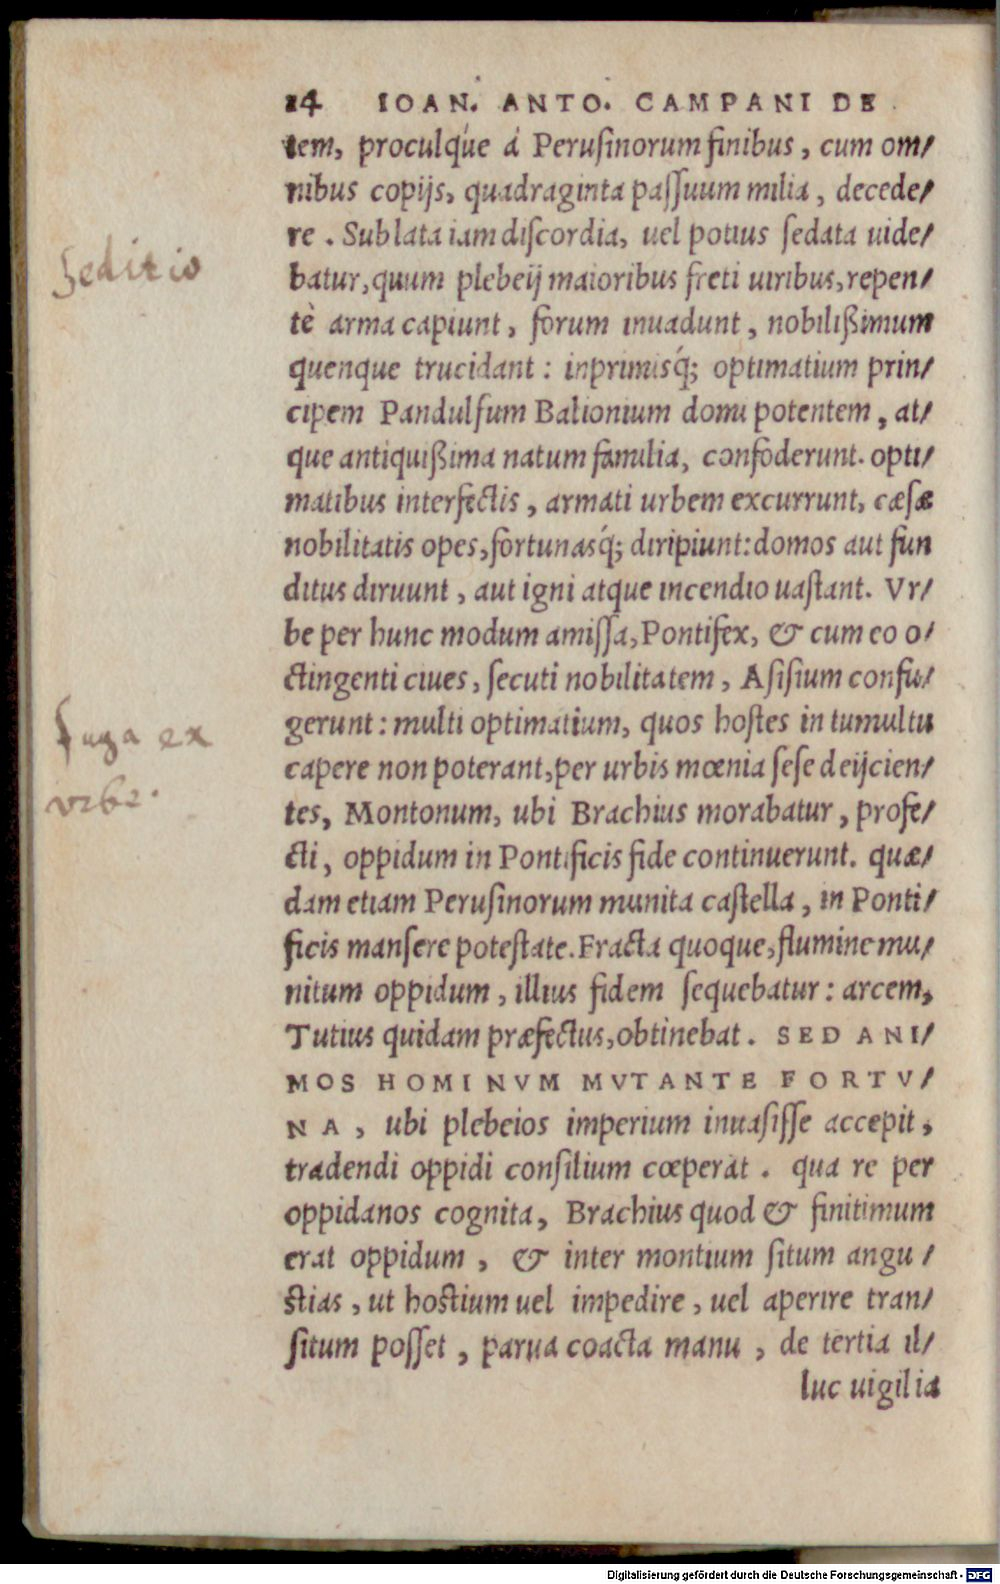 14 IOAN. ANTO. CAMPANI DE
tem, proculq́ue á Perusinorum finibus, cum om/
nibus copijs, quadraginta passuum milia, decede/
re. Sublata iam discordia, uel potius sedata uide/
batur, quum plebeij maioribus freti uiribus, repen/
tè arma capiunt, forum inuadunt, nobilißimum
quenque trucidant: inprimisq́; optimatium prin/
cipem Pandulfum Balionium domi potentem, at/
que antiquißima natum familia, confoderunt. opti/
matibus interfectis, armati urbem excurrunt, cæsæ
nobilitatis opes, fortunasq́; diripiunt: domos aut fun
ditus diruunt, aut igni atque incendio uastant. Vr/
be per hunc modum amissa, Pontifex, & cum eo o/
ctingenti ciues, secuti nobilitatem, Asisium confu/
gerunt: multi optimatium, quos hostes in tumultu
capere non poterant, per urbis mœnia sese deijcien/
tes, Montonum, ubi Brachius morabatur, profe/
cti, oppidum in Pontificis fide continuerunt. quæ/
dam etiam Perusinorum munita castella, in Ponti/
ficis mansere potestate. Fracta quoque, flumine mu/
nitum oppidum, illius fidem sequebatur: arcem,
Tutius quidam præfectus, obtinebat. SED ANI/
MOS HOMINVM MVTANTE FORTV/
NA, ubi plebeios imperium inuasisse accepit,
tradendi oppidi consilium cœperat. qua re per
oppidanos cognita, Brachius quod & finitimum
erat oppidum, & inter montium situm angu/
stias, ut hostium uel impedire, uel aperire tran/
situm posset, parua coacta manu, de tertia il/
luc uigilia
Seditio
fuga ex
vrbe.
Digitalisierung gefördert durch die Deutsche Forschungsgemeinschaft - DFG